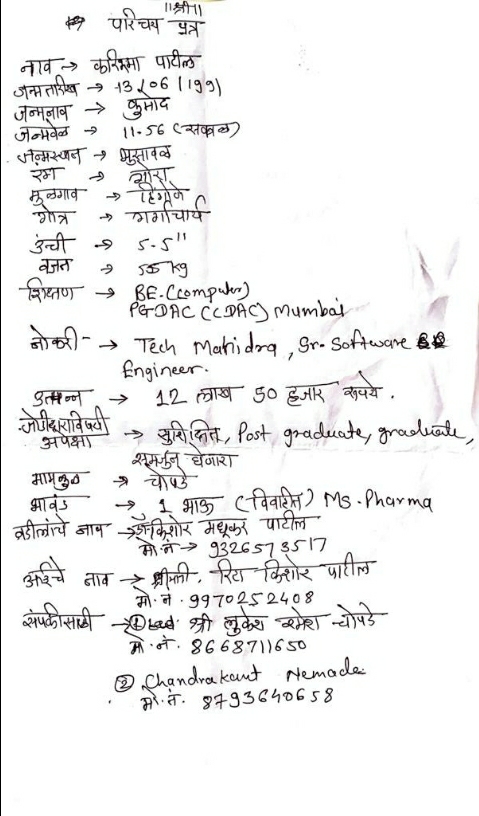 ॥श्री॥
परिचय पत्र
नाव → करिश्मा पाटील
जन्मतारीख → 13/06/1991
जन्मनाव → कुमोद
जन्मवेळ → 11.56 (सकाळ)
जन्मस्थान → भुसावळ
रंग → गोरा
मुळगाव → हिंगोणे
गोत्र → गर्गाचार्य
उंची → 5.5"
वजन → 55 kg
शिक्षण → BE.(computer)
PGDAC (CDAC) Mumbai
नोकरी - → Tech Mahidra, Sr. Software
Engineer.
उत्पन्न → 12 लाख 50 हजार रुपये.
जोडीदाराविषयी
अपेक्षा → सुशिक्षित, Post graduate, graduate,
समजुन घेणारा
मामकुळ → चोपडे
भावंड → 1 भाऊ (विवाहित) MS.Pharma
वडीलांचे नाव → किशोर मधूकर पाटील
मो.नं → 9326573517
आईचे नाव → श्रीमती. रिटा किशोर पाटील
मो.नं. 9970252408
संपर्कासाठी → ① श्री लुकेश रमेश चोपडे
मो.नं. 8668711650
② Chandrakant Nemade
मो.नं. 8793640658